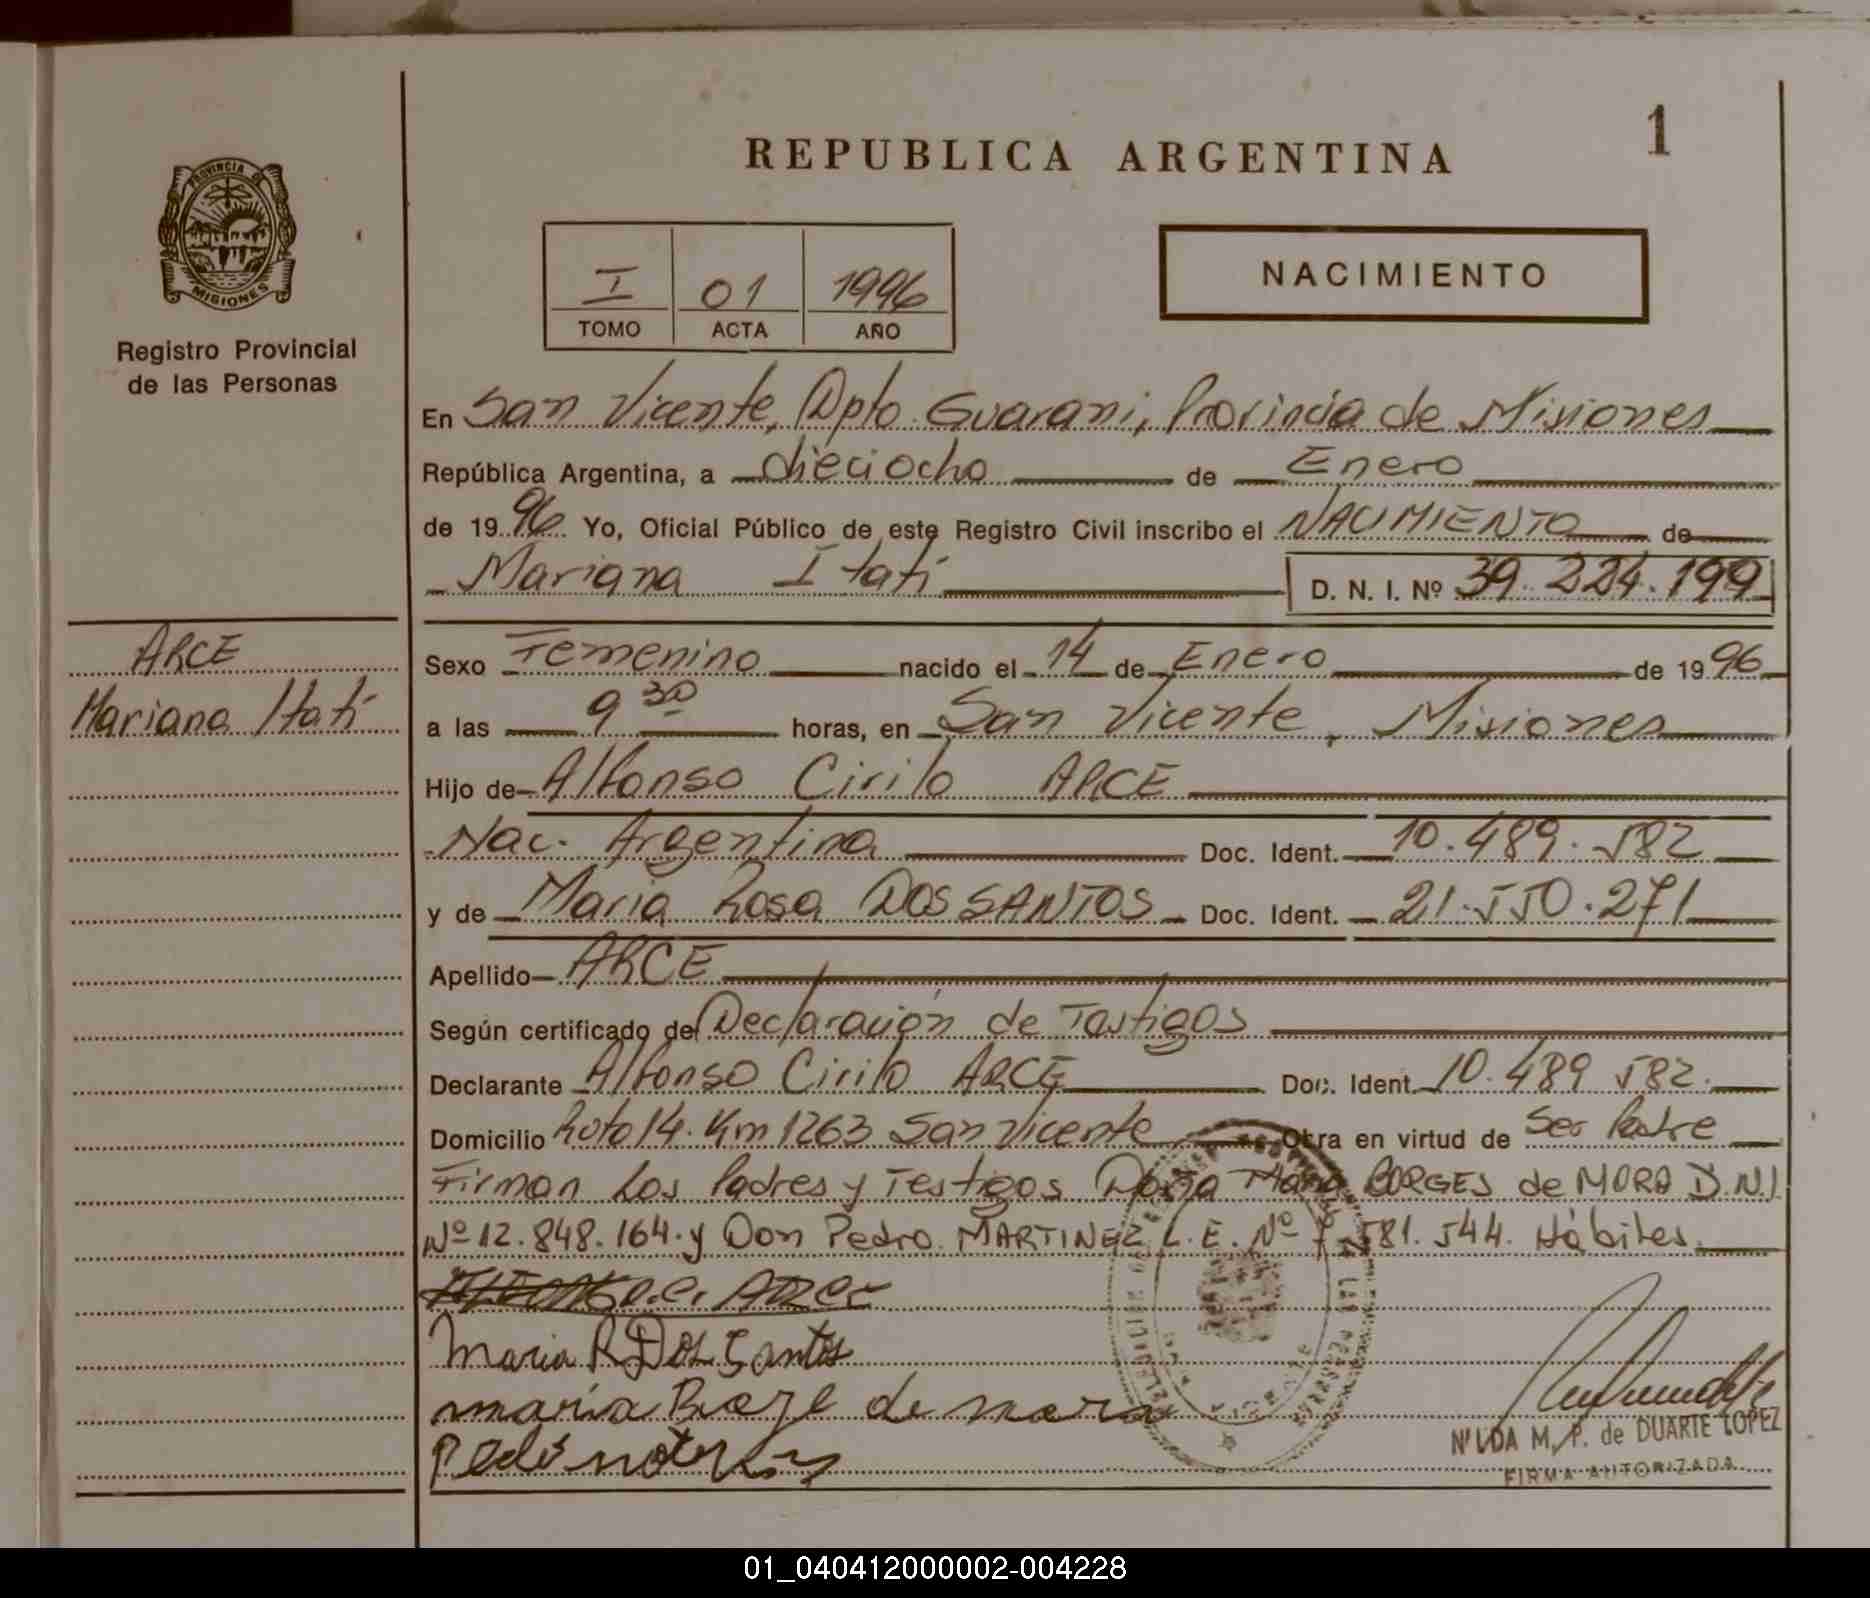 REPUBLICA ARGENTINA
1
PROVINCIA DE
MISIONES
Registro Provincial
de las Personas
I 01 1996
TOMO ACTA AÑO
NACIMIENTO
En San Vicente, Dpto. Guarani, Provincia de Misiones
República Argentina, a dieciocho de Enero
de 1996 Yo, Oficial Público de este Registro Civil inscribo el NACIMIENTO de
Mariana Itatí D. N. I. Nº 39.224.199
ARCE
Mariana Itatí
Sexo Femenino nacido el 14 de Enero de 1996
a las 9 30 horas, en San Vicente, Misiones
Hijo de Alfonso Cirilo ARCE
Nac. Argentina Doc. Ident. 10.489.582
y de Maria Rosa DOS SANTOS Doc. Ident. 21.550.271
Apellido ARCE
Según certificado de Declaración de Testigos
Declarante Alfonso Cirilo ARCE Doc. Ident. 10.489 582.
Domicilio Ruta 14. Km 1263 San Vicente Obra en virtud de Ser Padre
Firman Los Padres y Testigos Doña BORGES de MORA D.N.I
Nº 12.848.164. y Don Pedro MARTINEZ L.E. Nº 581.544. Hábiles.
ARCE
Maria R Dos Santos
maria de mora
NILDA M. P. de DUARTE LOPEZ
FIRMA AUTORIZADA
01_040412000002-004228